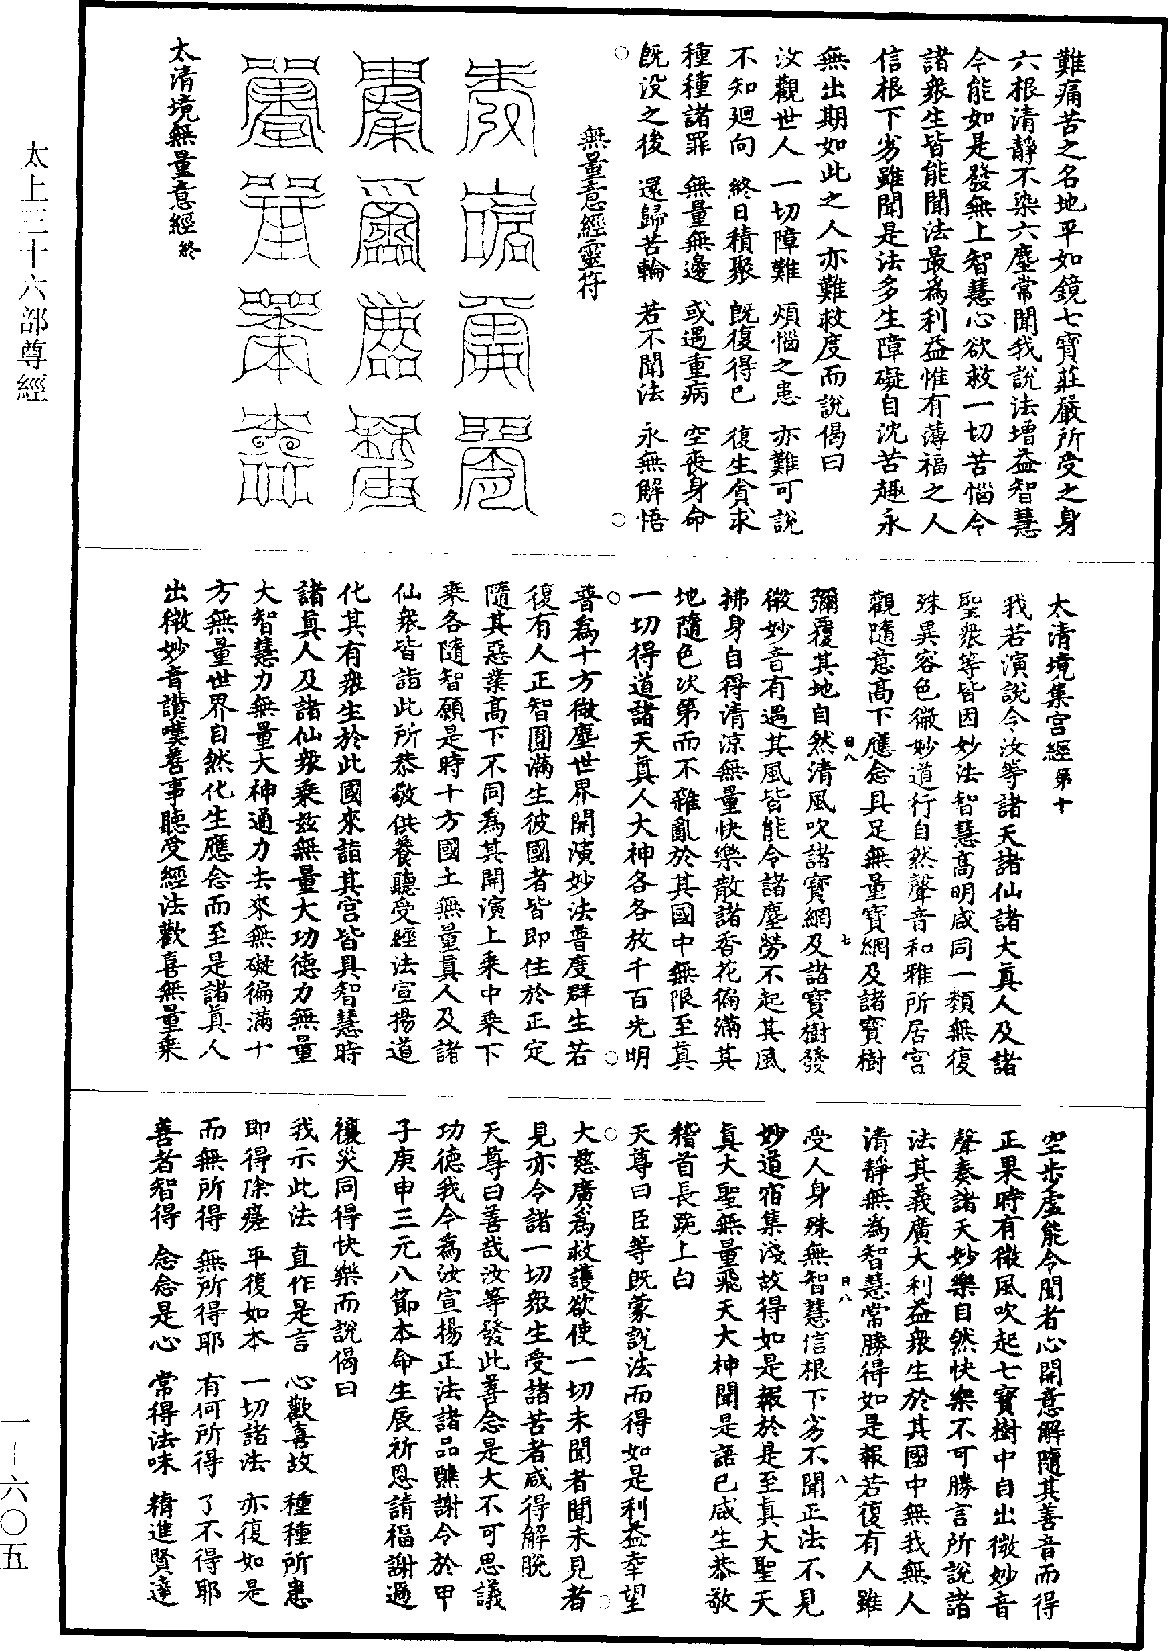 太上三十六部尊經
難痛苦之名地平如鏡七寶莊嚴所受之身
六根清靜不染六塵常聞我說法增益智慧
令能如是發無上智慧心欲救一切苦惱令
諸眾生皆能聞法最為利益惟有薄福之人
信根下劣雖聞是法多生障礙自沈苦趣永
無出期如此之人亦難救度而說偈曰
汝觀世人 一切障難 煩惱之患 亦難可說
不知迴向 終日積聚 既復得已 復生貪求
種種諸罪 無量無邊 或遇重病 空喪身命
既没之後 還歸苦輪 若不聞法 永無解悟
無量意經靈符
太清境無量意經終
太清境集宫經第十
我若演說今汝等諸天諸仙諸大真人及諸
聖眾等皆因妙法智慧高明咸同一類無復
殊異容色微妙道行自然聲音和雅所居宫
觀隨意高下應念具足無量寶網及諸寶樹
彌覆其地自然清風吹諸寶網及諸寶樹發
微妙音有遇其風皆能令諸塵勞不起其風
拂身自得清涼無量快樂散諸香花徧滿其
地隨色次第而不雜亂於其國中無限至真
一切得道諸天真人大神各各放千百光明
普為十方微塵世界開演妙法普度群生若
復有人正智圓滿生彼國者皆即住於正定
隨其惡業高下不同為其開演上乘中乘下
乘各隨智願是時十方國土無量真人及諸
仙眾皆詣此所恭敬供養聽受經法宣揚道
化其有眾生於此國來詣其宫皆具智慧時
諸真人及諸仙眾乘兹無量大功德力無量
大智慧力無量大神通力去來無礙徧滿十
方無量世界自然化生應念而至是諸真人
出微妙音讚嘆善事聽受經法歡喜無量乘
空步虛能令聞者心開意解隨其善音而得
正果時有微風吹起七寶樹中自出微妙音
聲奏諸天妙樂自然快樂不可勝言所說諸
法其義廣大利益眾生於其國中無我無人
清靜無為智慧常勝得如是報若復有人雖
受人身殊無智慧信根下劣不聞正法不見
妙道宿集淺故得如是報於是至真大聖天
真大聖無量飛天大神聞是語已咸生恭敬
稽首長跪上白
天尊曰臣等既蒙說法而得如是利益幸望
大慈廣為救護欲使一切未聞者聞未見者
見亦令諸一切眾生受諸苦者咸得解脫
天尊曰善哉汝等發此善念是大不可思議
功德我今為汝宣揚正法諸品醮謝令於甲
子庚申三元八節本命生辰祈恩請福謝過
禳災同得快樂而說偈曰
我示此法 直作是言 心歡喜故 種種所患
即得除痊 平復如本 一切諸法 亦復如是
而無所得 無所得耶 有何所得 了不得耶
善者智得 念念是心 常得法味 精進賢達
一－六〇五